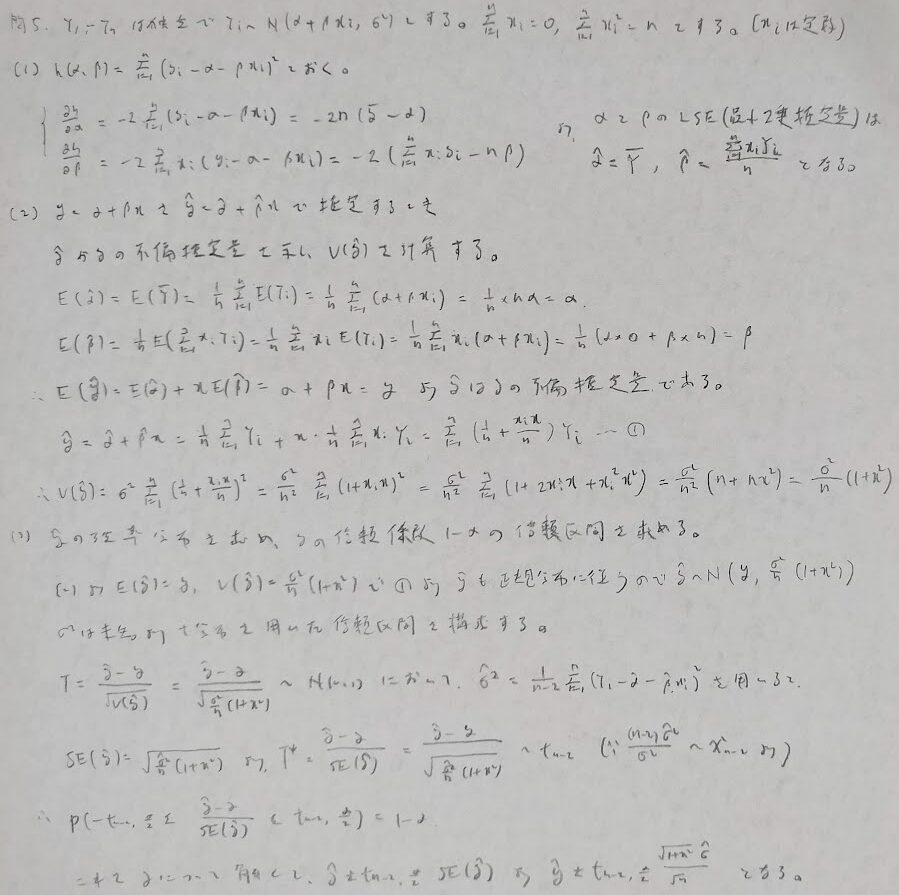 問5. Y₁,…Yₙ は独立で Yᵢ ~ N(α+βxᵢ, σ²) とする。 Σⁿᵢ₌₁ xᵢ = 0, Σⁿᵢ₌₁ xᵢ² = n とする。(xᵢは定数)
(1) h(α, β) = Σⁿᵢ₌₁ (yᵢ - α - βxᵢ)² とおく。
∂h/∂α = -2 Σⁿᵢ₌₁ (yᵢ - α - βxᵢ) = -2n (ȳ - α)
∂h/∂β = -2 Σⁿᵢ₌₁ xᵢ (yᵢ - α - βxᵢ) = -2 (Σⁿᵢ₌₁ xᵢyᵢ - nβ)
より, α と β の LSE (最小2乗推定量) は
α̂ = Ȳ, β̂ = Σⁿᵢ₌₁ xᵢYᵢ / n となる。
(2) y = α + βx を ŷ = α̂ + β̂x で推定するとき
ŷ がyの不偏推定量を示し, V(ŷ) を計算する。
E(α̂) = E(Ȳ) = 1/n Σⁿᵢ₌₁ E(Yᵢ) = 1/n Σⁿᵢ₌₁ (α + βxᵢ) = 1/n × nα = α.
E(β̂) = 1/n E(Σⁿᵢ₌₁ xᵢYᵢ) = 1/n Σⁿᵢ₌₁ xᵢ E(Yᵢ) = 1/n Σⁿᵢ₌₁ xᵢ (α + βxᵢ) = 1/n (α×0 + β×n) = β
∴ E(ŷ) = E(α̂) + xE(β̂) = α + βx = y より ŷ は y の不偏推定量である。
ŷ = α̂ + β̂x = 1/n Σⁿᵢ₌₁ Yᵢ + x・1/n Σⁿᵢ₌₁ xᵢ Yᵢ = Σⁿᵢ₌₁ (1/n + xᵢx/n) Yᵢ … ①
∴ V(ŷ) = σ² Σⁿᵢ₌₁ (1/n + xᵢx/n)² = σ²/n² Σⁿᵢ₌₁ (1+xᵢx)² = σ²/n² Σⁿᵢ₌₁ (1 + 2xᵢx + xᵢ²x²) = σ²/n² (n + nx²) = σ²/n (1+x²)
(3) ŷ の確率分布を求め, y の信頼係数 1-α の信頼区間を求める。
(2) より E(ŷ) = y, V(ŷ) = σ²/n (1+x²) で ① より ŷ も正規分布に従うので ŷ ~ N(y, σ²/n (1+x²))
σ²は未知より t分布を用いた信頼区間を構成する。
T = (ŷ - y)/√V(ŷ) = (ŷ - y)/√(σ²/n (1+x²)) ~ N(0,1) において, σ̂² = 1/(n-2) Σⁿᵢ₌₁ (Yᵢ - α̂ - β̂xᵢ)² を用いると,
SE(ŷ) = √(σ̂²/n (1+x²)) より, T* = (ŷ - y)/SE(ŷ) = (ŷ - y)/√(σ̂²/n (1+x²)) ~ tₙ₋₂ (∵ (n-2)σ̂²/σ² ~ χ²ₙ₋₂ より)
∴ P(-tₙ₋₂, α/2 ≤ (ŷ - y)/SE(ŷ) ≤ tₙ₋₂, α/2) = 1-α
これを y について解くと, ŷ ± tₙ₋₂, α/2 SE(ŷ) より ŷ ± tₙ₋₂, α/2 √(1+x²) σ̂/√n となる。